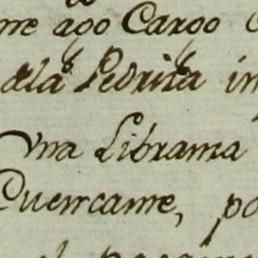 me ago Cargo
dela Pedrira in
Una Librama
Cuencame, po